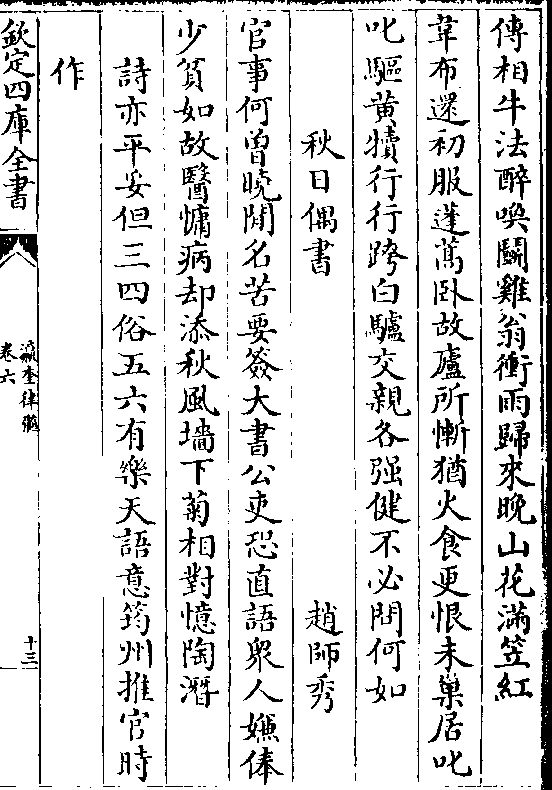 傳相牛法醉喚鬭雞翁衝雨歸來晚山花滿笠紅
韋布還初服蓬蒿卧故廬所慚猶火食更恨未巢居叱
叱驅黄犢行行跨白驢交親各强健不必問何如
秋日偶書 趙師秀
官事何曽曉閒名苦要簽大書公吏恐直語衆人嫌俸
少貧如故醫慵病却添秋風墻下菊相對憶陶潛
詩亦平妥但三四俗五六有樂天語意筠州推官時
作
欽定四庫全書
瀛奎律髓
卷六
十三